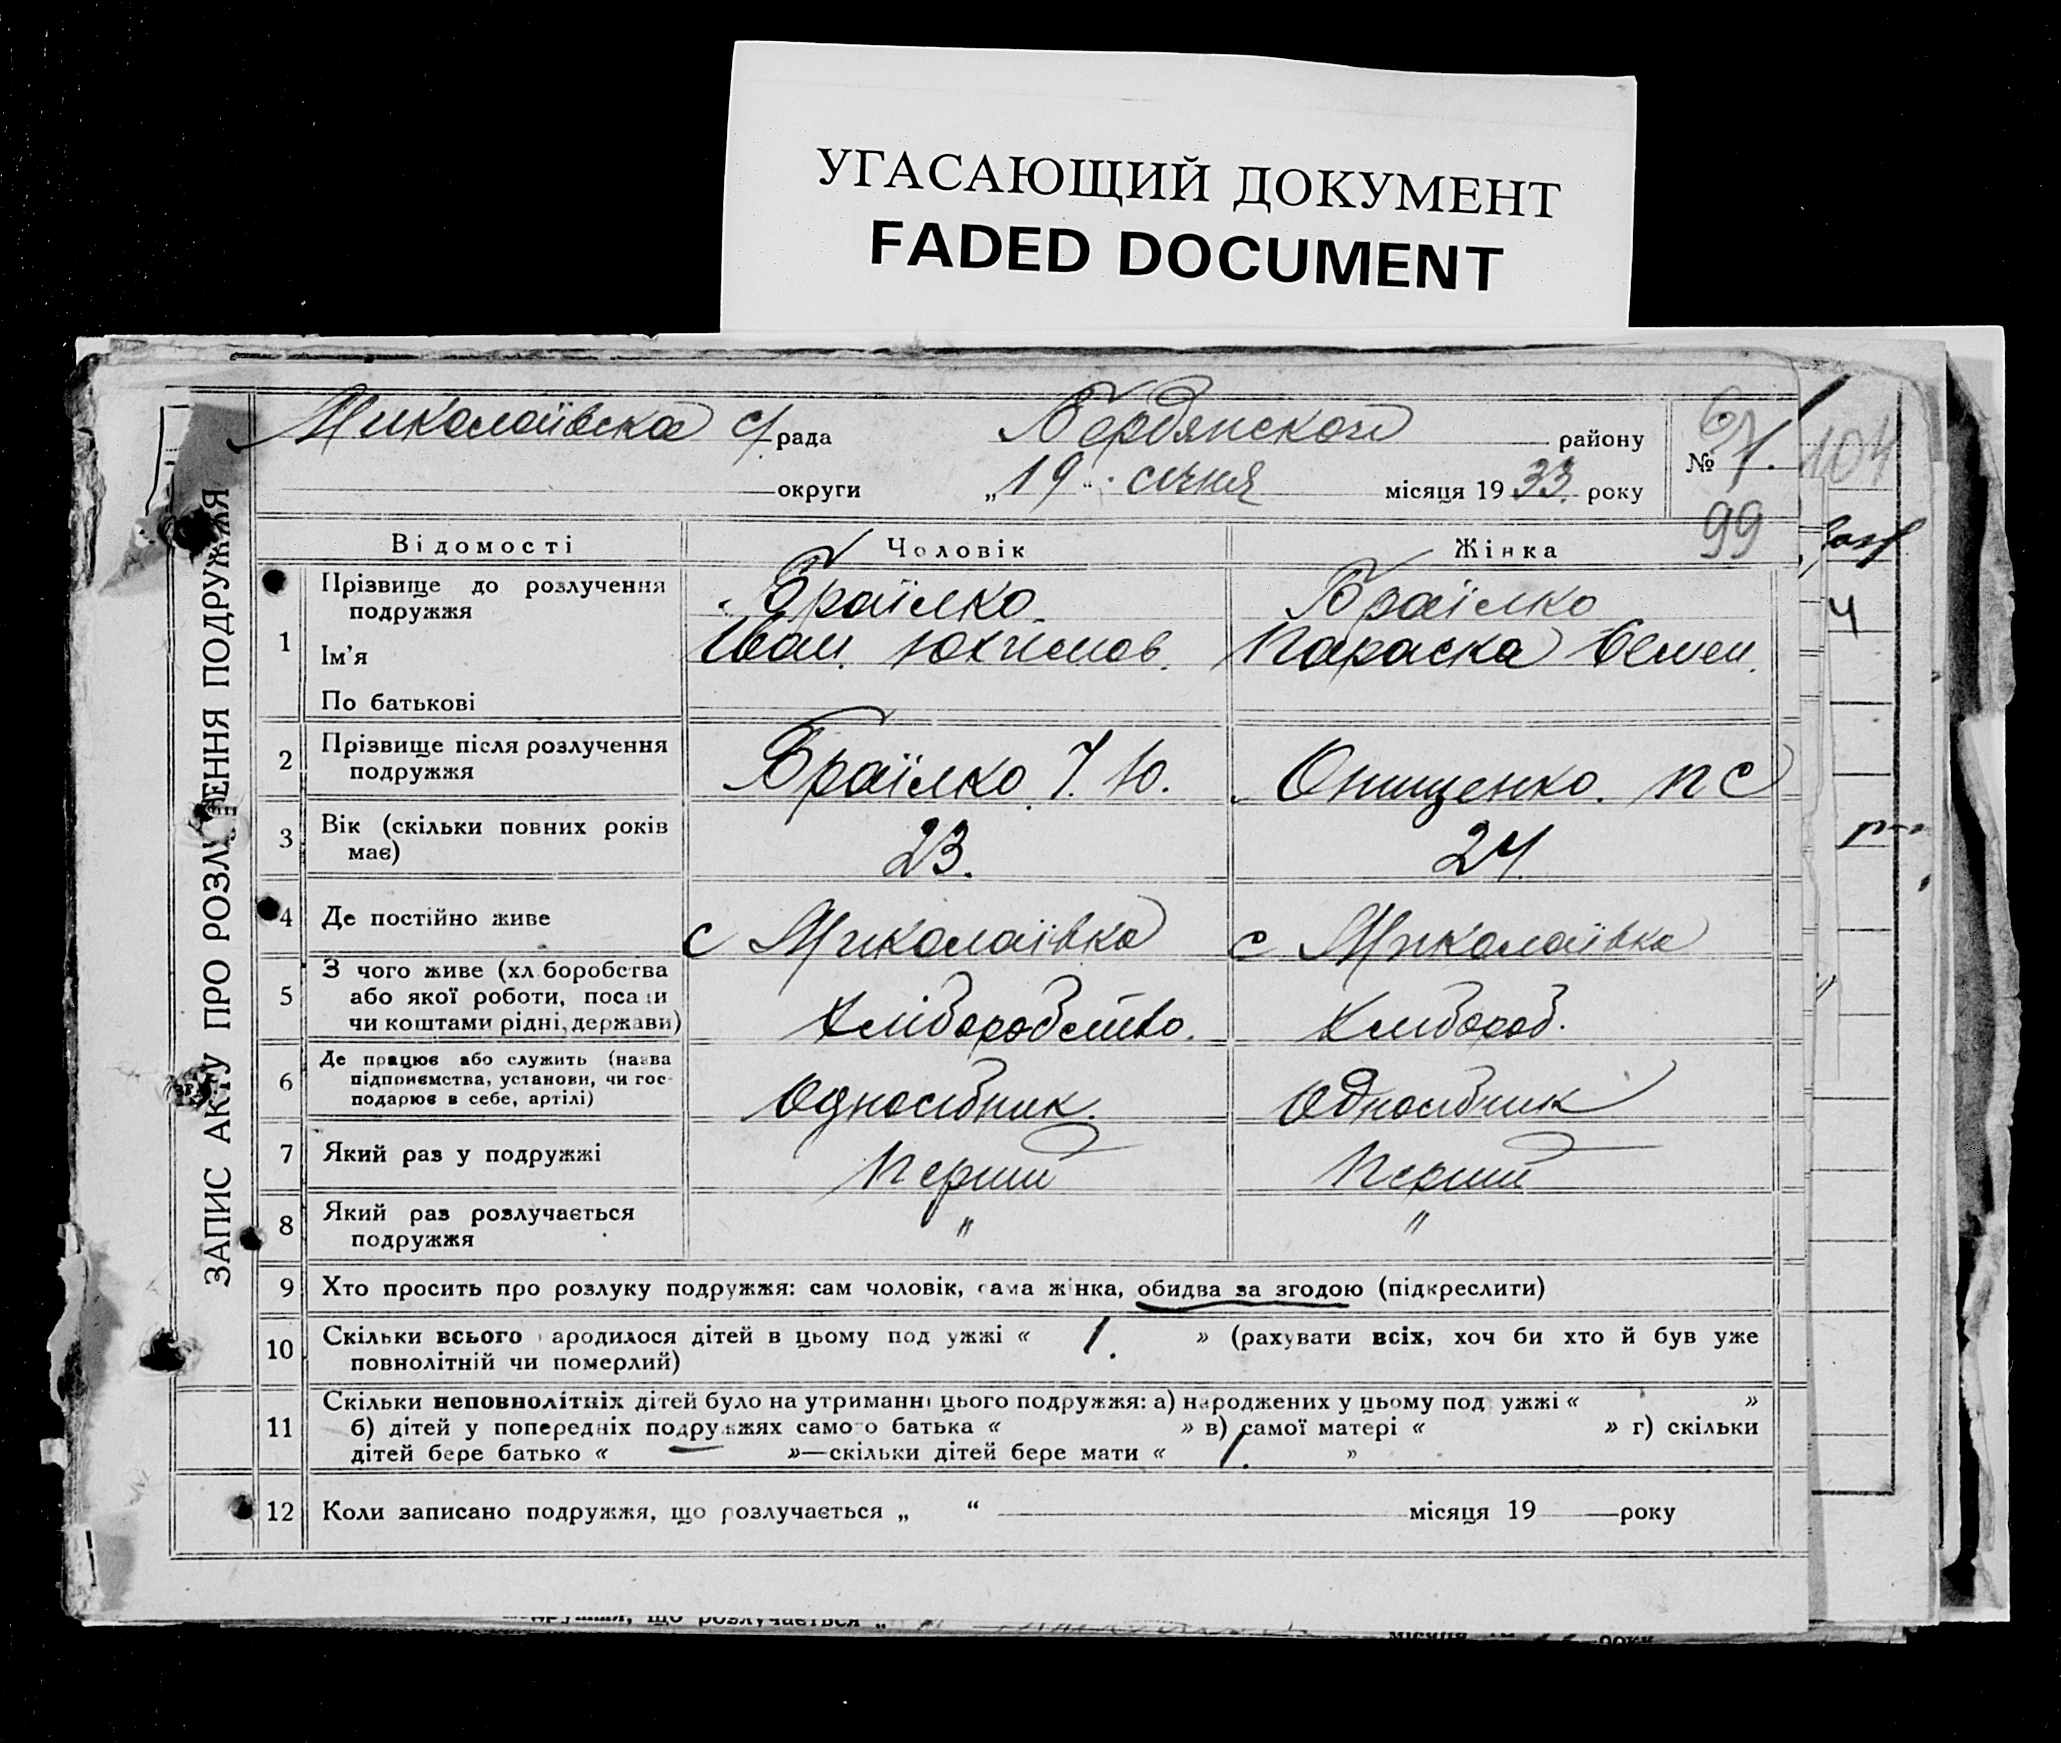 УГАСАЮЩИЙ ДОКУМЕНТ
FADED DOCUMENT
ЗАПИС АКТУ ПРО РОЗЛУЧЕННЯ ПОДРУЖЖЯ
Миколаївска с/рада Бердянского району
округи „19“ січня місяця 1933. року
№ 1.
104
99
Відомості Чоловік Жінка
1 Прізвище до розлучення подружжя Браїлко Браїлко
Ім'я Іван Юхимов. Параска Семен.
По батькові
2 Прізвище після розлучення подружжя Браїлко І. Ю. Онищенко. П С
3 Вік (скільки повних років має) 23. 24.
4 Де постійно живе с Миколаївка с Миколаївка
5 З чого живе (хліборобства
або якої роботи, посади
чи коштами рідні, держави) Хліборобство. Хлібороб.
6 Де працює або служить (назва
підприємства, установи, чи гос-
подарює в себе, артілі) Одноосібник. Одноосібник
7 Який раз у подружжі Перший Перший
8 Який раз розлучається подружжя " "
9 Хто просить про розлуку подружжя: сам чоловік, сама жінка, обидва за згодою (підкреслити)
10 Скільки всього народилося дітей в цьому подружжі « 1. » (рахувати всіх, хоч би хто й був уже
повнолітній чи померлий)
11 Скільки неповнолітніх дітей було на утриманні цього подружжя: а) народжених у цьому подружжі « »
б) дітей у попередніх подружжях самого батька « » в) самої матері « » г) скільки
дітей бере батько « — »—скільки дітей бере мати « 1. »
12 Коли записано подружжя, що розлучається „ “ місяця 19 року